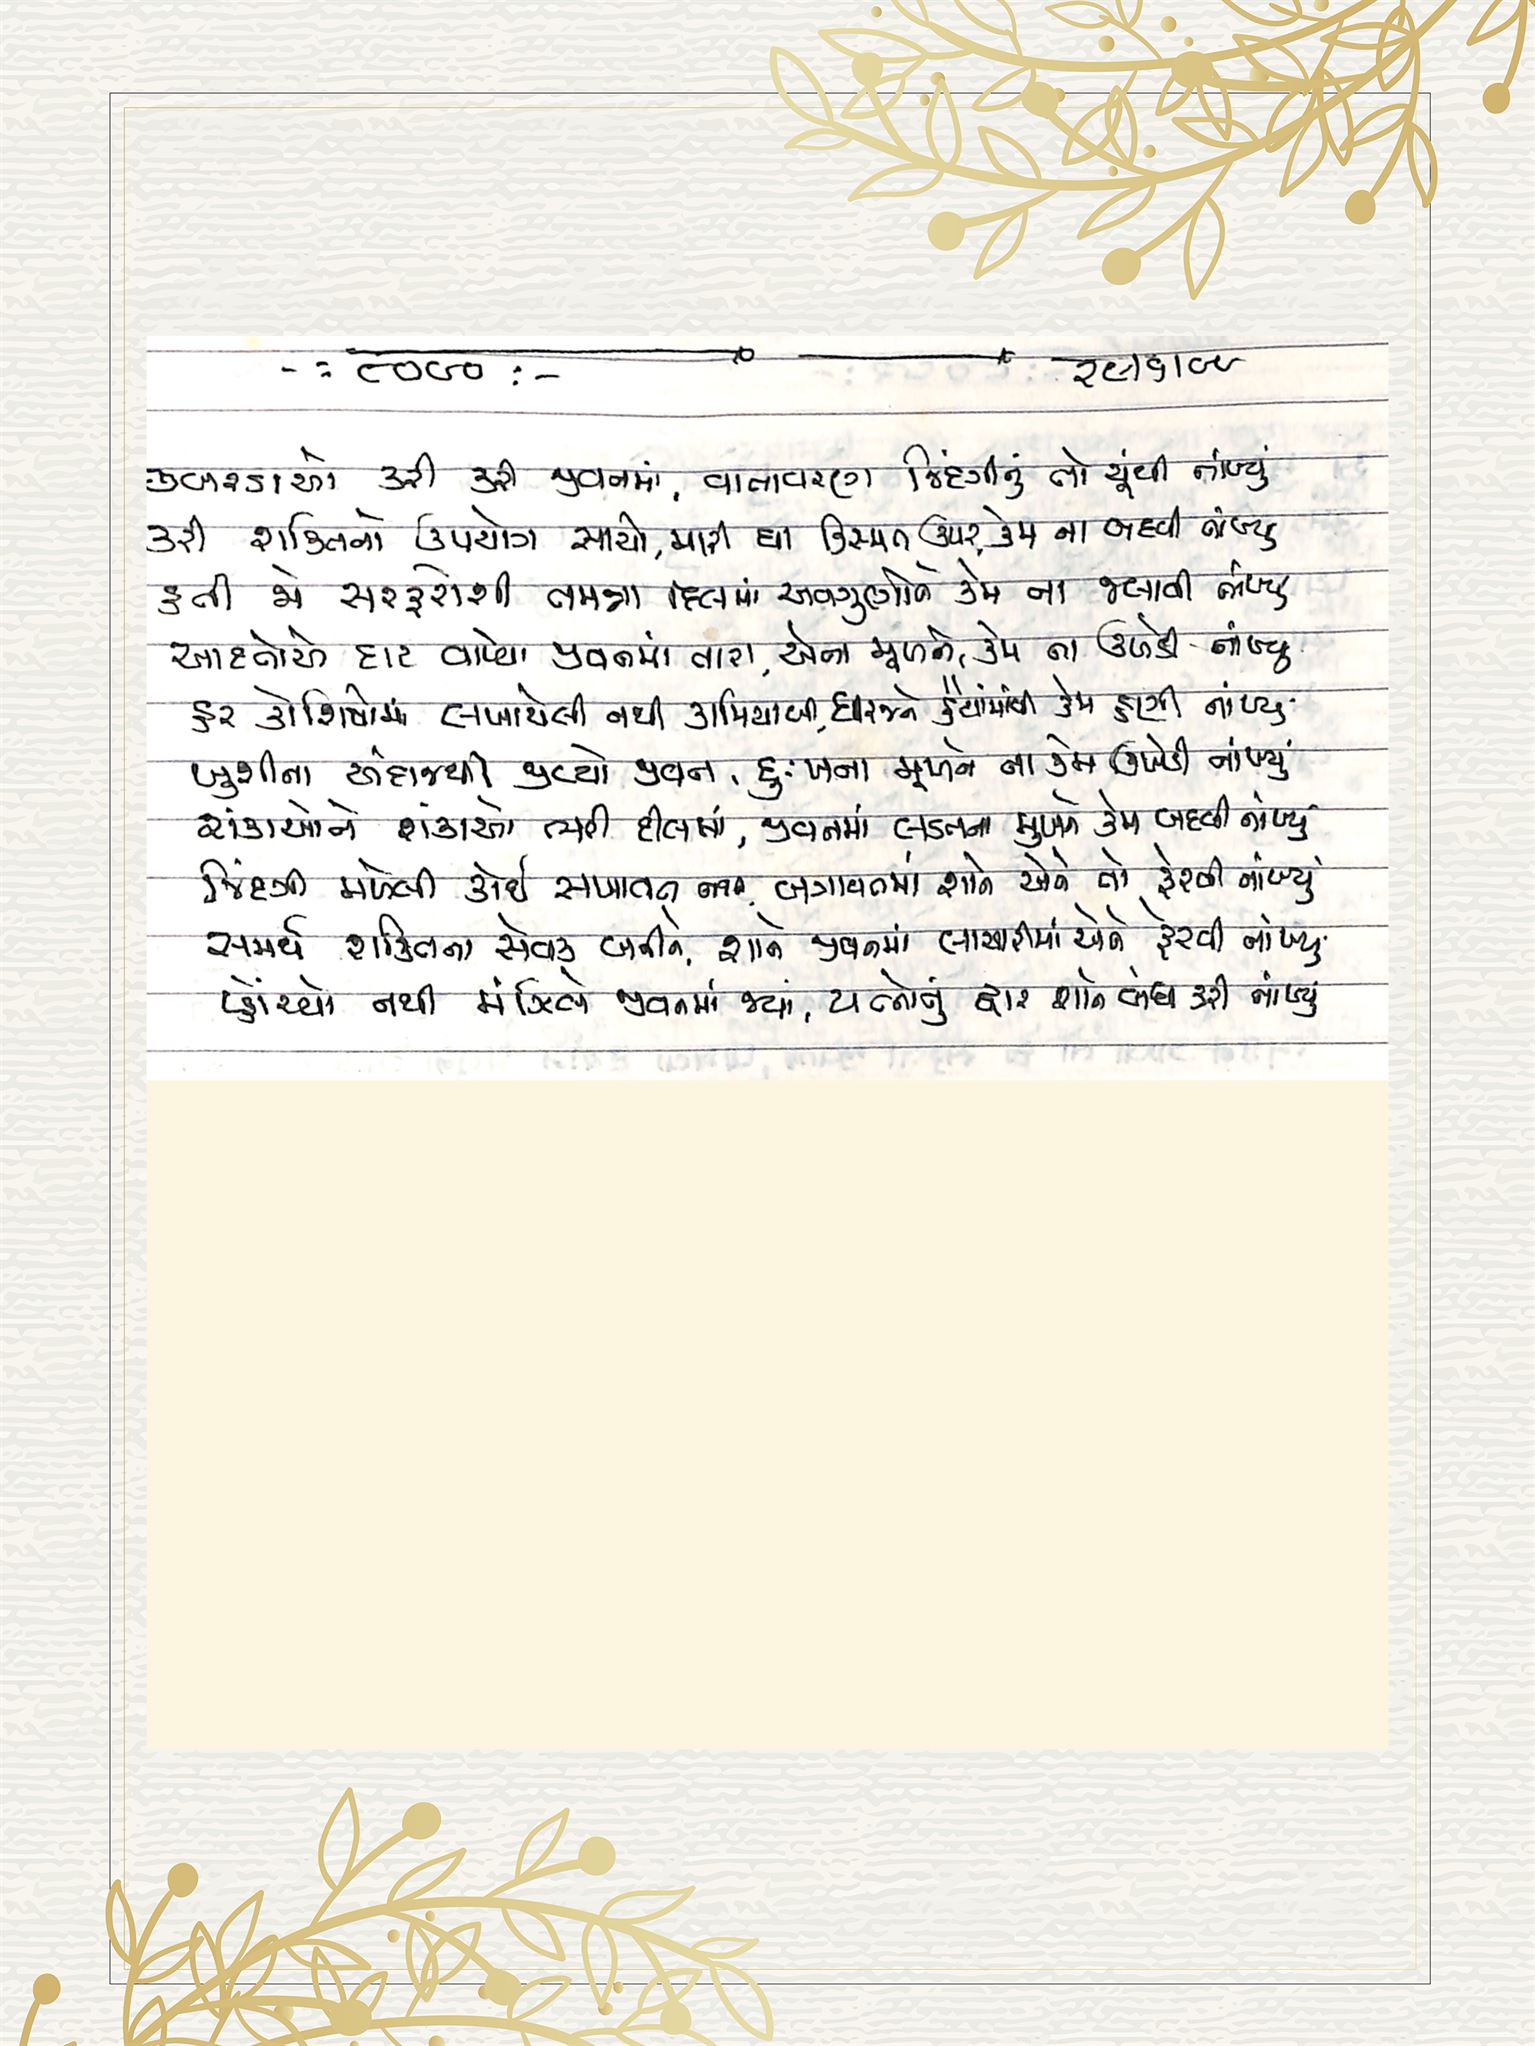 -: ૮૦૭૦ :-
જબરડાઓ કરી કરી જીવનમાં, વાતાવરણ જિંદગીનું તો ચૂંથી નાંખ્યું
કરી શક્તિનો ઉપયોગ સાચો, મારી ઘા કિસ્મત ઉપર, કેમ ના બદલી નાંખ્યું
હતી જો સરફરોશી તમન્ના દિલમાં અવગુણોને કેમ ના જલાવી નાંખ્યું
આદતોએ દાટ વાળ્યા જીવનમાં તારા, એના મૂળને, કેમ ના ઉખેડી નાંખ્યું
હર કોશિષોમાં લખાયેલી નથી કામિયાબી, ધીરજને હૈયાંમાંથી કેમ હણી નાંખ્યું
ખુશીના અંદાજથી જીવ્યો જીવન, દુઃખના મૂળને ના કેમ ઉખેડી નાંખ્યું
શંકાઓને શંકાઓ ભરી દીલમાં, જીવનમાં વર્તનના મુખને કેમ બદલી નાંખ્યું
જિંદગી મળેલી કોઈ સખાવત નથી, બગાવતમાં શાને એને તો ફેરવી નાંખ્યું
સમર્થ શક્તિના સેવક બનીને, શાને જીવનમાં લાચારીમાં એને ફેરવી નાંખ્યું
પ્હોંચ્યો નથી મંઝિલે જીવનમાં જ્યાં, યત્નોનું દ્વાર શાને બંધ કરી નાંખ્યું